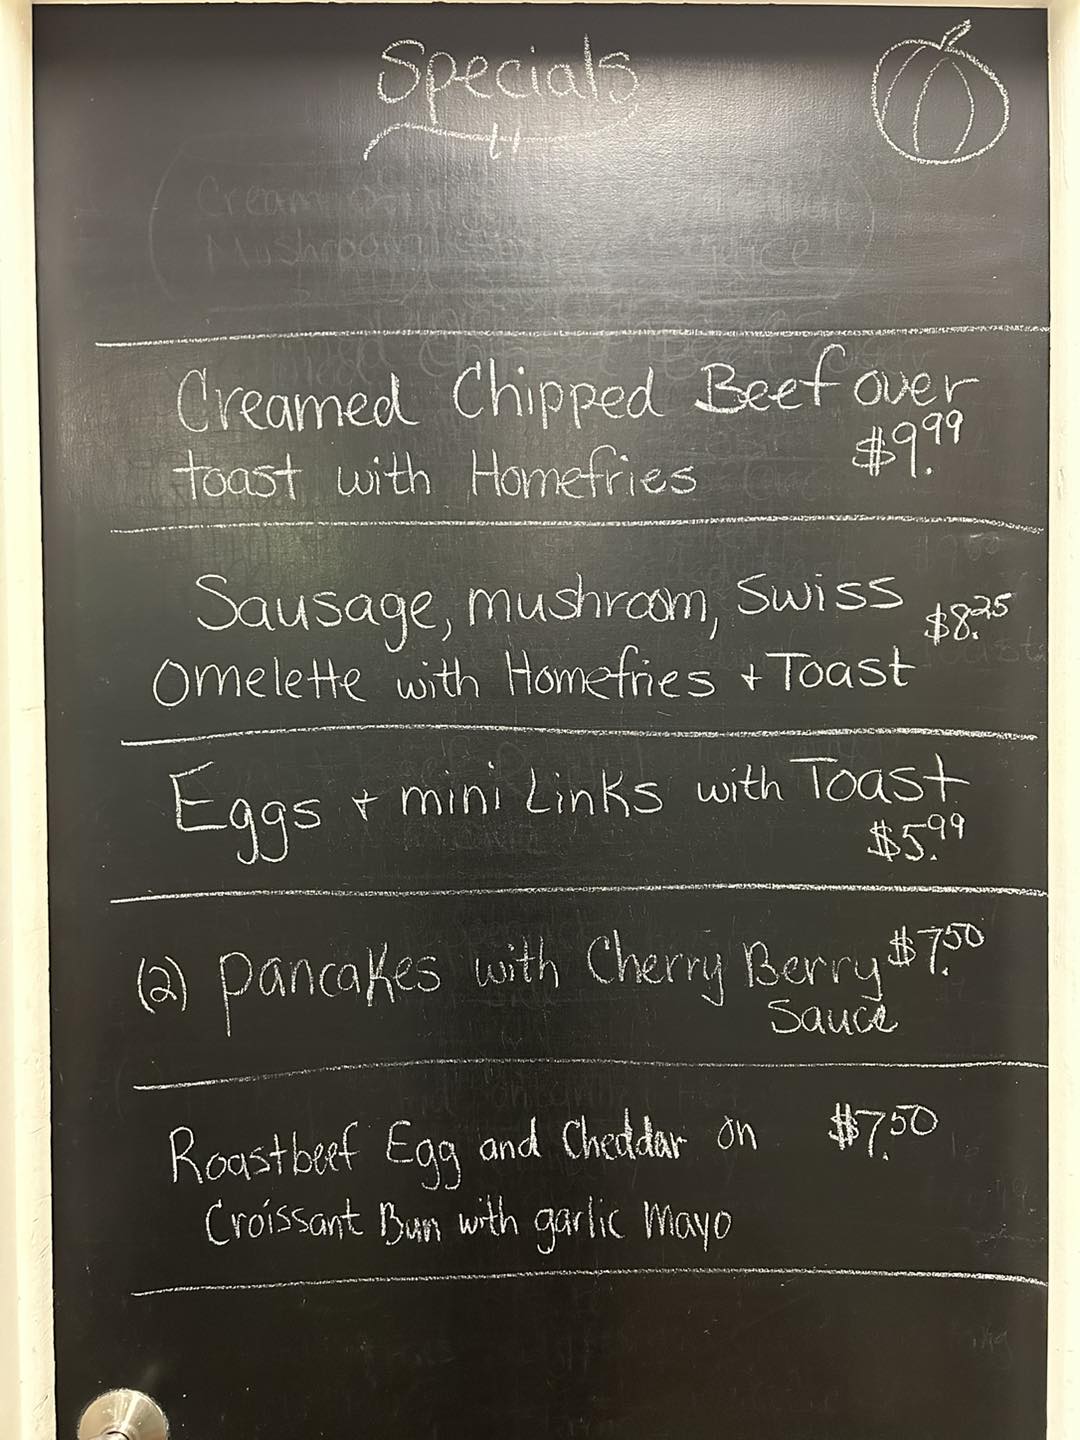 Specials
Cream of
Mushroom
Rice
Creamed Chipped Beef over
toast with Homefries $9.99
Sausage, mushroom, Swiss $8.25
Omelette with Homefries + Toast
Eggs + mini Links with Toast
$5.99
(2) pancakes with Cherry Berry $7.50
Sauce
Roastbeef Egg and Cheddar on $7.50
Croissant Bun with garlic Mayo